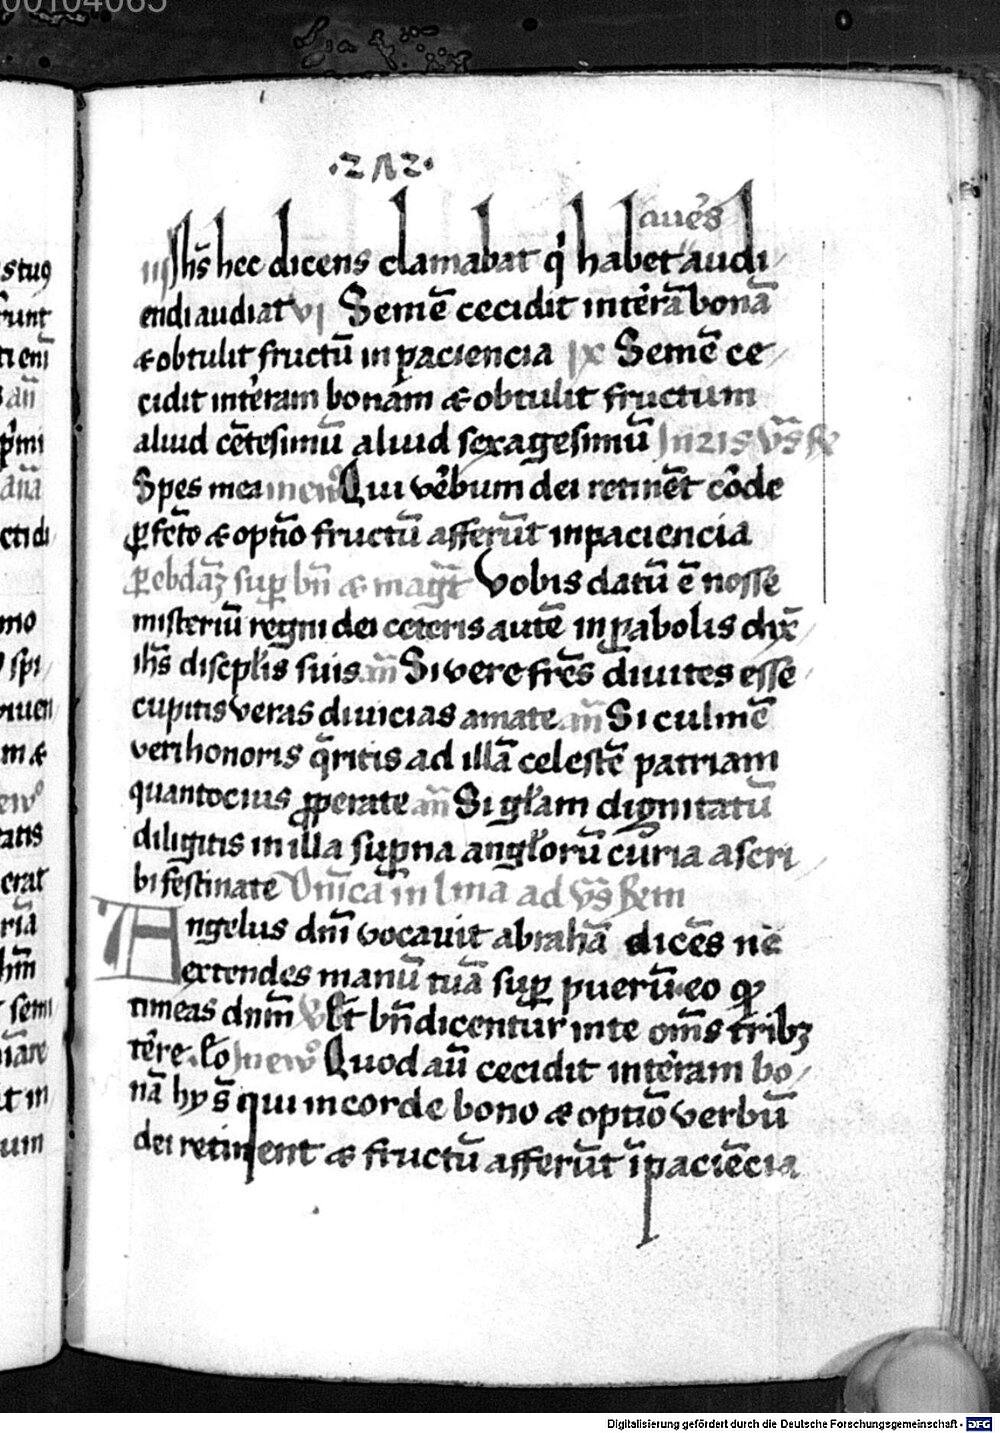 00104065
·212·
aures
iii Jhs̄ hec dicens clamabat q̇ habet audi
endi audiat vi Semē cecidit in t̾rā bonā
& obtulit fructū in paciencia ix Semē ce
cidit in t̾ram bonam & obtulit fructum
aliud cētesimū aliud sexagesimū
Spes mea in ew̾ Qui v̾bum dei retinēt cōde
ꝑfcto & optīo fructū afferūt in paciencia
ꝑ ebdaꝫ suꝑ bn̄ & magt̄ Vobis datū ē nosse
misteriū regni dei ceteris autē in ꝑabolis dix̄
ihs̄ discplis suis an̄ Si vere frēs diuites esse
cupitis veras diuicias amate an̄ Si culmē
veri honoris q̄ritis ad illā celestē patriam
quantocius ꝓperate an̄ Si głam dignitatū
diligitis in illa suꝑna angłorū curia ascri
bi festinate Dn̄ica in lma ad vs̄
Angelus dn̄i vocauit abrahā dicēs ne
extendes manū tuā suꝑ puerū eo ꝙ
timeas dnm̄ V Et bn̄dicentur in te om̄s tribꝫ
t̾re Ro In ew̾ Quod aū cecidit in t̾ram bo
nā hy s̄ qui in corde bono & optīo verbū
dei retinent & fructū afferūt ī paciēcia
Digitalisierung gefördert durch die Deutsche Forschungsgemeinschaft - DFG